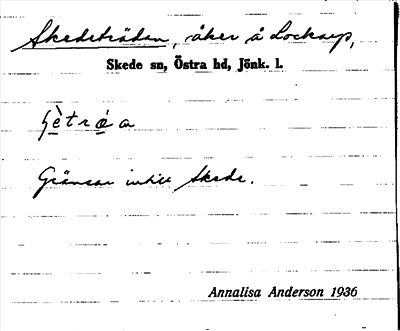 Skedeträdan, åker å Lockarp,
Skede sn, Östra hd, Jönk. l.
Gränsar intill Skede.
Annalisa Anderson 1936